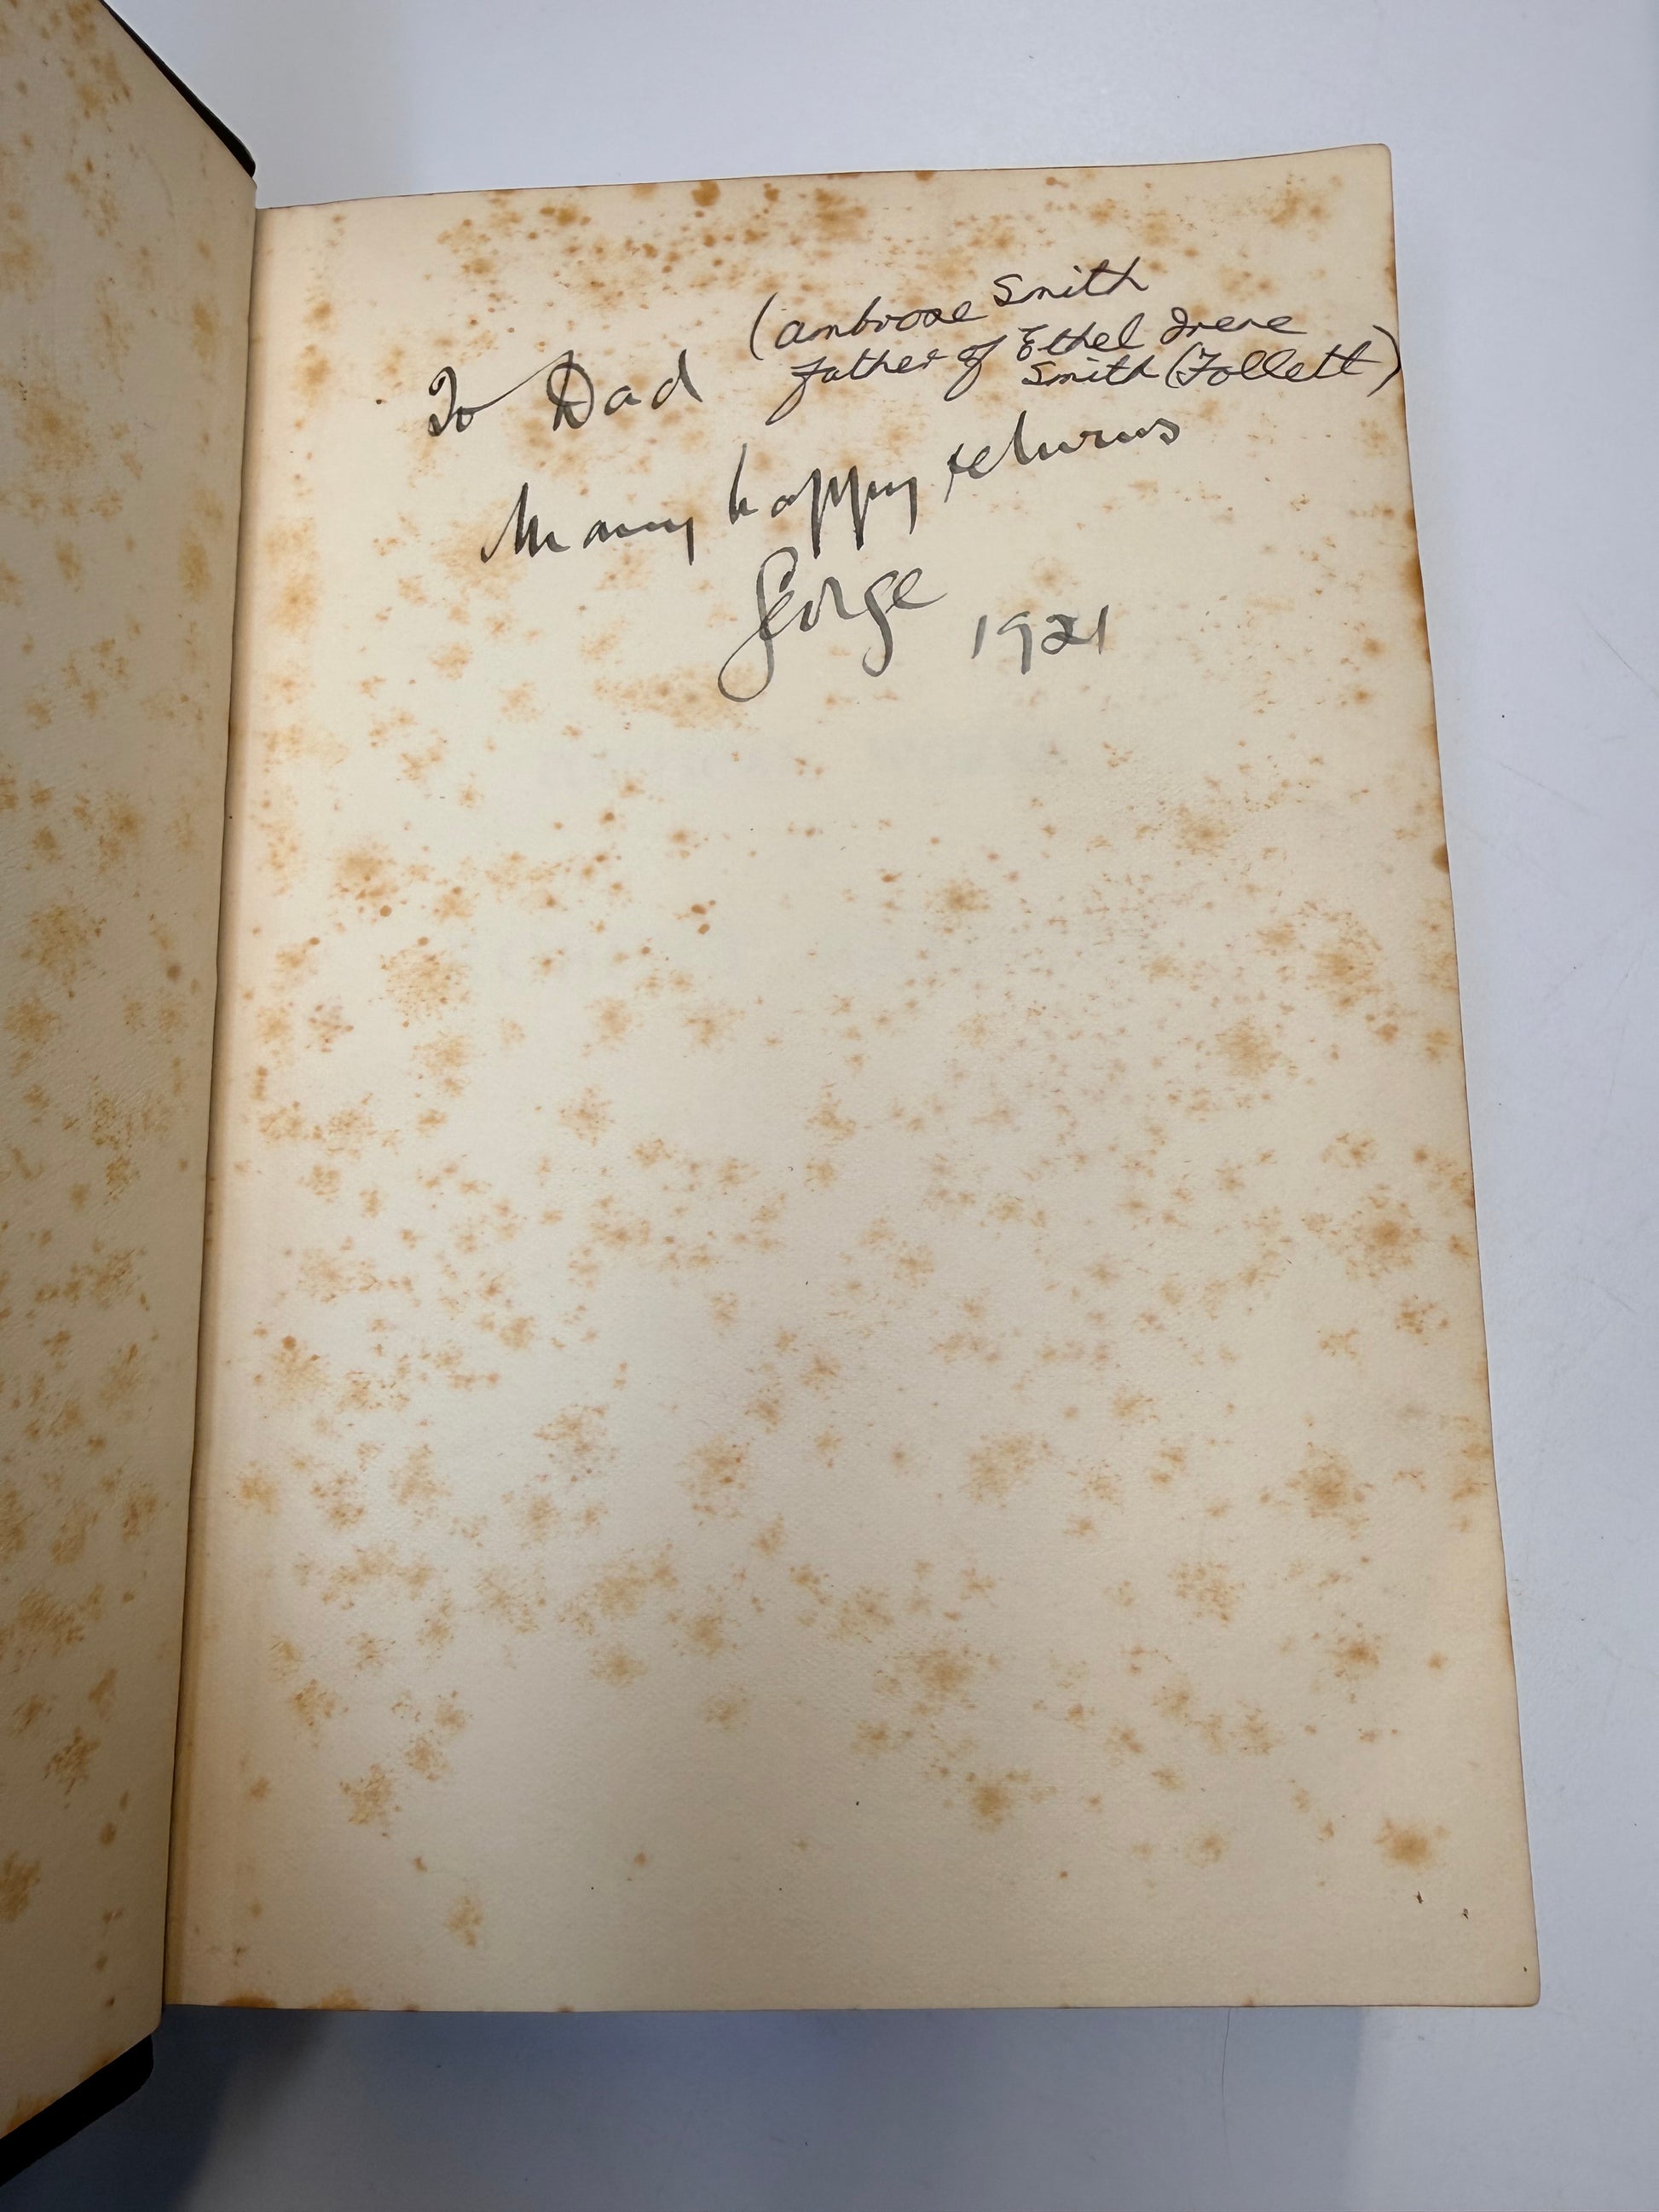 To Dad
(Ambrose Smith
father of Ethel Irene
Smith (Follett)
Many happy returns
George
1921